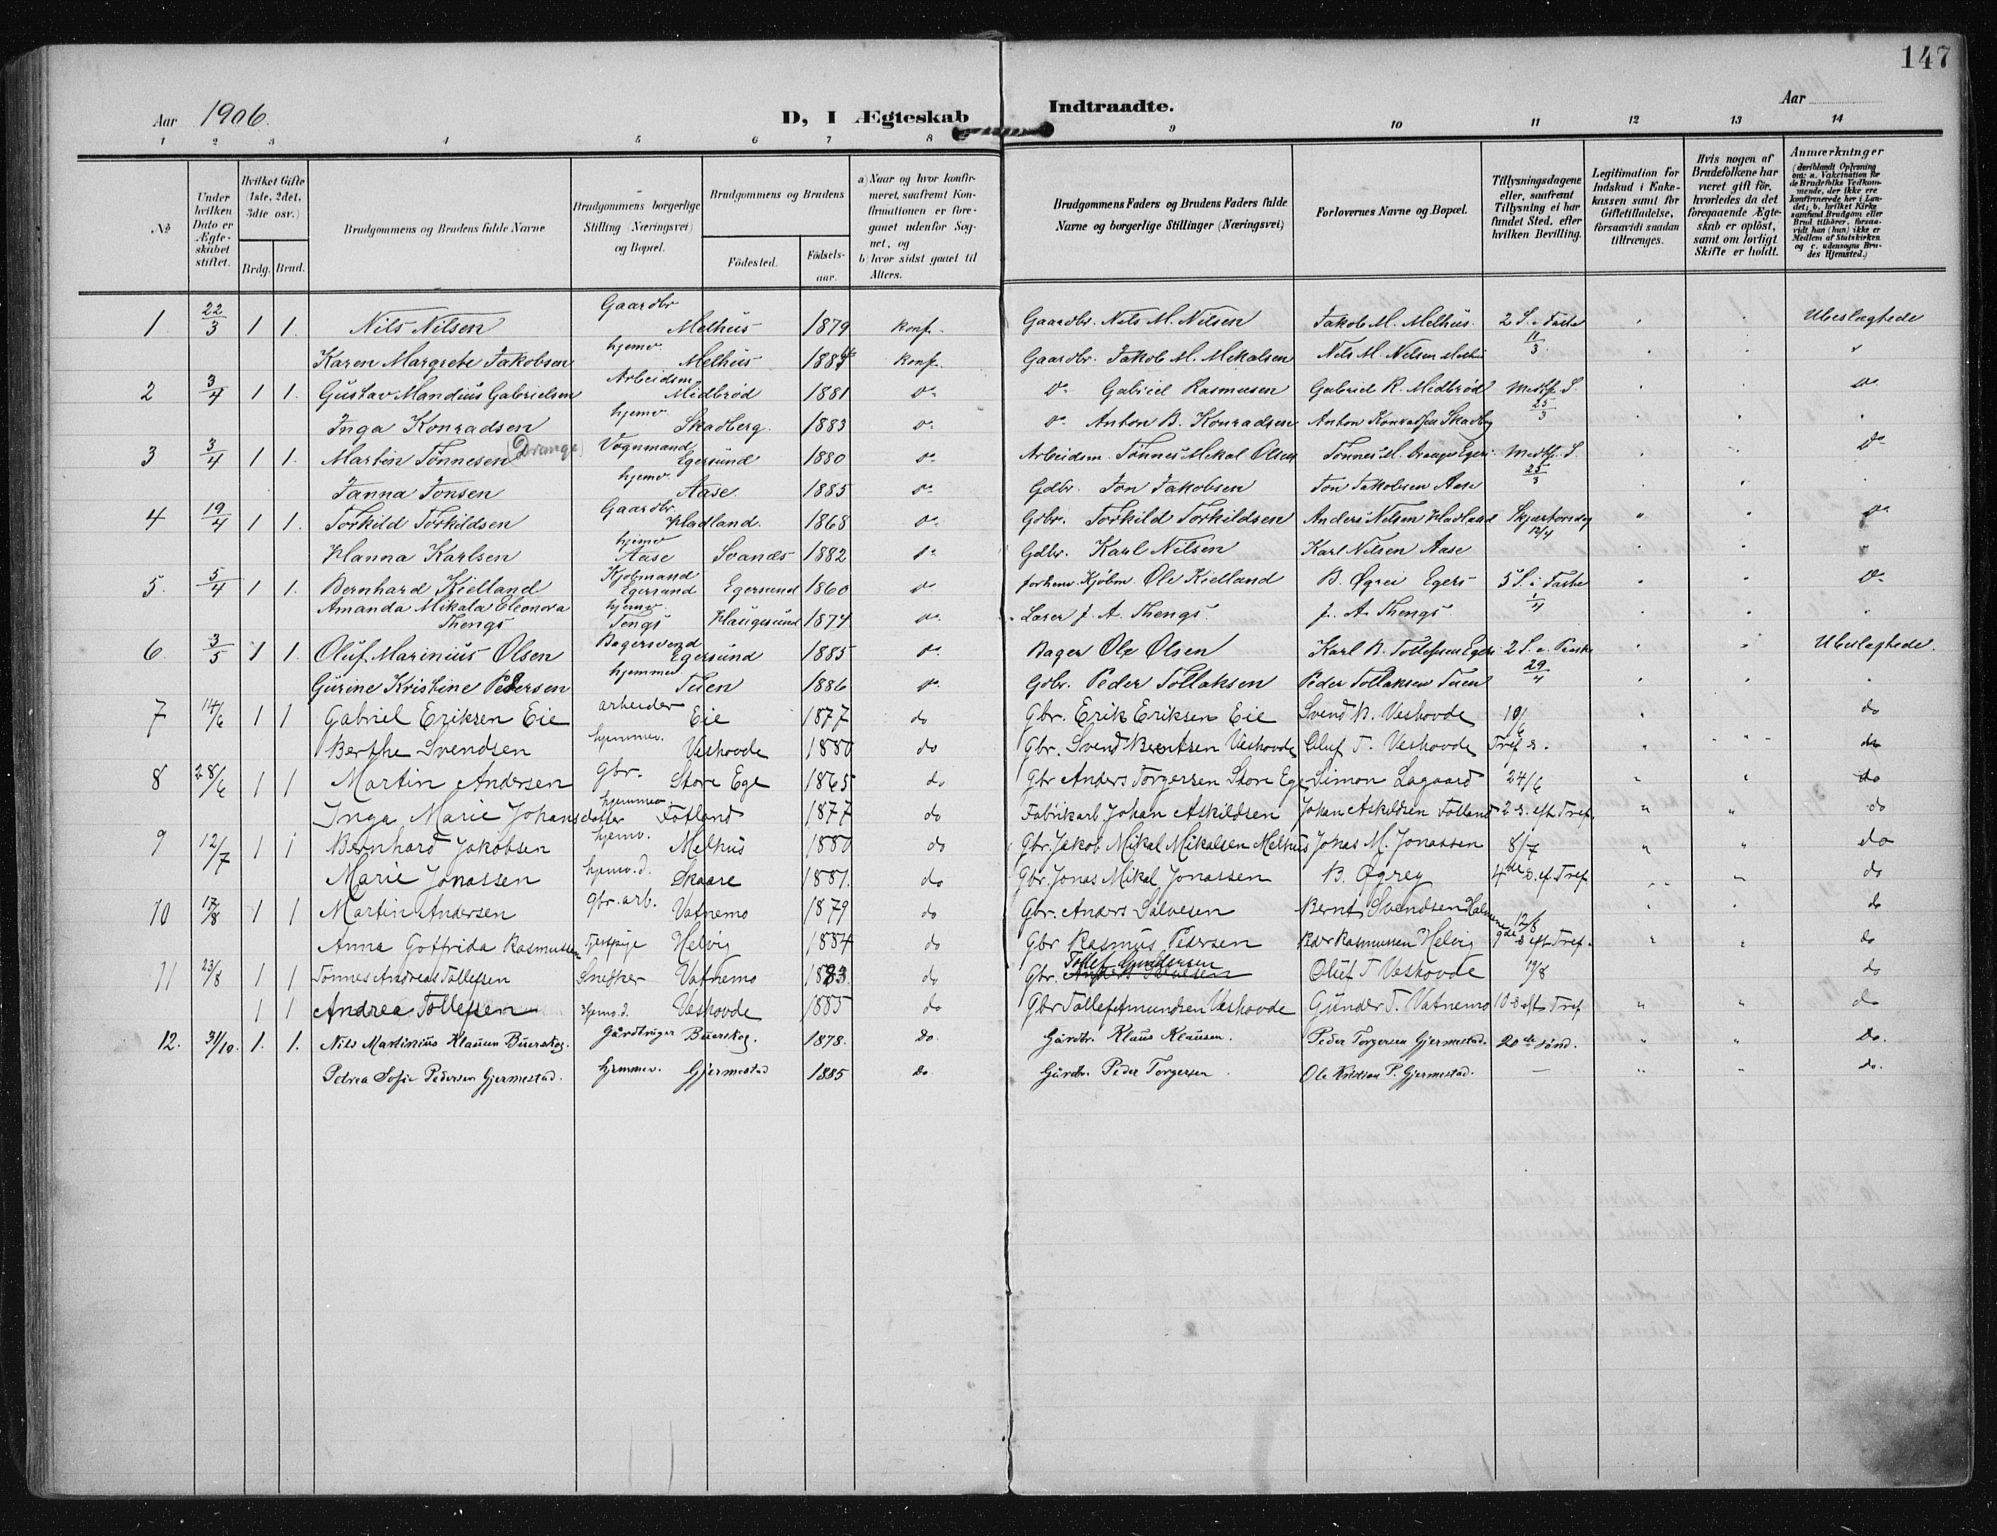 147
Aar 1906. D, I Ægteskab Indtraadte. Aar
1 2 3 4 5 6 7 8 9 10 11 12 13 14
№
Under hvilken Dato er Ægteskabet stiftet.
Hvilket Gifte (1ste, 2det, 3die osv.)
Brdg. Brud.
Brudgommens og Brudens fulde Navne
Brudgommens borgerlige Stilling (Næringsvei) og Bopæl.
Brudgommens og Brudens
Fødested. Fødselsaar.
a) Naar og hvor konfirmeret, saafremt Konfirmationen er foregaaet udenfor Sognet, og
b) hvor sidst gaaet til Alters.
Brudgommens Faders og Brudens Faders fulde Navne og borgerlige Stillinger (Næringsvei)
Forlovernes Navne og Bopæl.
Tillysningsdagene eller, saafremt Tillysning ei har fundet Sted, efter hvilken Bevilling.
Legitimation for Indskud i Enkekassen samt for Giftetilladelse, forsaavidt saadan tiltrænges.
Hvis nogen af Brudefolkene har været gift før, hvorledes da det foregaaende Ægteskab er opløst, samt om lovligt Skifte er holdt.
Anmærkninger
(deriblandt Oplysning om: a. Vakcination for de Brudefolks Vedkommende, der ikke ere konfirmerede her i Landet; b. hvilket Kirkesamfund Brudgom eller Brud tilhører, forsaavidt han (hun) ikke er Medlem af Statskirken og c. udensogns Brudes Hjemsted.)
1 22/3 1 1. Nils Nilsen Gaardbr Melhus 1879 konf. Gaardbr. Nils M. Nilsen Jakob M. Melhus. 2 S. i Faste 11/3 Ubeslægtede
Karen Margrete Jakobsen hjemv Melhus 1884 konf. Gaardbr. Jakob M. Mikalsen Nils M. Nilsen
2 3/4 1 1. Gustav Mandius Gabrielsen Arbeidsm Midbrød 1881 do Gabriel Rasmusen Gabriel R. Midbrød Midtf. S. 25/3 do
Inga Konradsen hjemv Skadberg. 1883 do Anton B. Konradsen Anton Konradsen Skadbg
3 3/4 1 1. Martin Tønnesen (Drange) Vognmand Egersund 1880 do Arbeidsm. Tønnes Mikal Olsen Tønnes M. Drange Egers. Midtf. S 25/3 do
Janna Jonsen hjemv Aase. 1885 do Gdbr. Jon Jakobsen Jon Jakobsen Aase
4 19/4 1 1. Torkild Torkildsen Gaardbr Hadland. 1868 do Gdbr. Torkild Torkildsen Anders Nilsen Hadland Skjærtorsdag 12/4 do
Hanna Karlsen hjemv Aase Svanes 1882 do Gdbr. Karl Nilsen Karl Nilsen Aase
5. 5/4 1 1. Bernhard Kielland Kjøbmand Egersund Egersund 1860 do forhenv Kjøbm. Ole Kielland B. Øgrei Egers 5 S. i Faste 1/4 do
Amanda Mikala Eleonora Thengs hjemv Tengs Haugesund 1874 do Læser J. A. Thengs. J. A. Thengs
6. 3/5 1 1. Oluf Marinius Olsen Bagersvend Egersund 1885 do Bager Ole Olsen Karl B. Tollefsen Egers 2 S. e. Paaske 29/4 Ubeslægtede.
Gurine Kristine Pedersen hjemmev Tuen 1886 do Gdbr. Peder Tollaksen Peder Tollaksen Tuen
7 14/6 1 1 Gabriel Eriksen Eie arbeider Eie 1877 do Gbr. Erik Eriksen Eie Svend B. Veshovde 10/6 do
Berthe Svendsen hjemmev. Veshovde 1880 do Gbr. Svend Berntsen Veshovde Oluf T. Veshovde Tref s. do
8 28/6 1 1 Martin Andersen gbr. Store Ege 1865 do Gbr Anders Torgersen Store Ege Simon Lagaard 24/6 do
Inga Marie Johansdatter hjemmev Fotland 1877 do Fabrikarb Johan Askildsen Johan Askildsen Fotland 2 s. eft Tref. do
9 12/7 1 1 Bernhard Jakobsen hjemv. Melhus 1880 do Gbr. Jakob Mikal Mikalsen Melhus Jonas M. Jonassen 8/7 do
Marie Jonassen hjemv. d. Skaare 1881. do Gbr. Jonas Mikal Jonassen B. Øgrey 4de s. ef. Tref do
10 17/8 1 1 Martin Andersen gbr. arb. Vatnemo 1879 do Gbr. Anders Salvesen Bernt Svendsen 12/8 do
Anna Gotfrida Rasmussen Tjenstpige Helvig 1884 do Gbr Rasmus Pedersen Peder Rasmussen Helvig 9de s eft Tref. do
11 23/8 1 1 Tønnes Andreas Tollefsen Snekker Vatnemo 1883 do Gbr. Tollef Gundersen Anders Salvesen Oluf T Veshovde 19/8 do
1 1 Andrea Tollefsen Hjemv. d. Veshovde 1885 do Gbr Tollef Amundsen Veshovde Gunder T. Vatnemo 10 s eft Tref do
12. 31/10. 1. 1. Nils Martinius Klausen Buerskog. Gårdbruger Buerskog. 1878. Do. Gårdbr. Klaus Klausen. Peder Torgersen Gjermestad. 20de sønd. do.
Petrea Sofie Pedersen Gjermestad. hjemmev. Gjermestad 1885 Do Gårdbr. Peder Torgersen. Ole Kristian P. Gjermestad. — do.